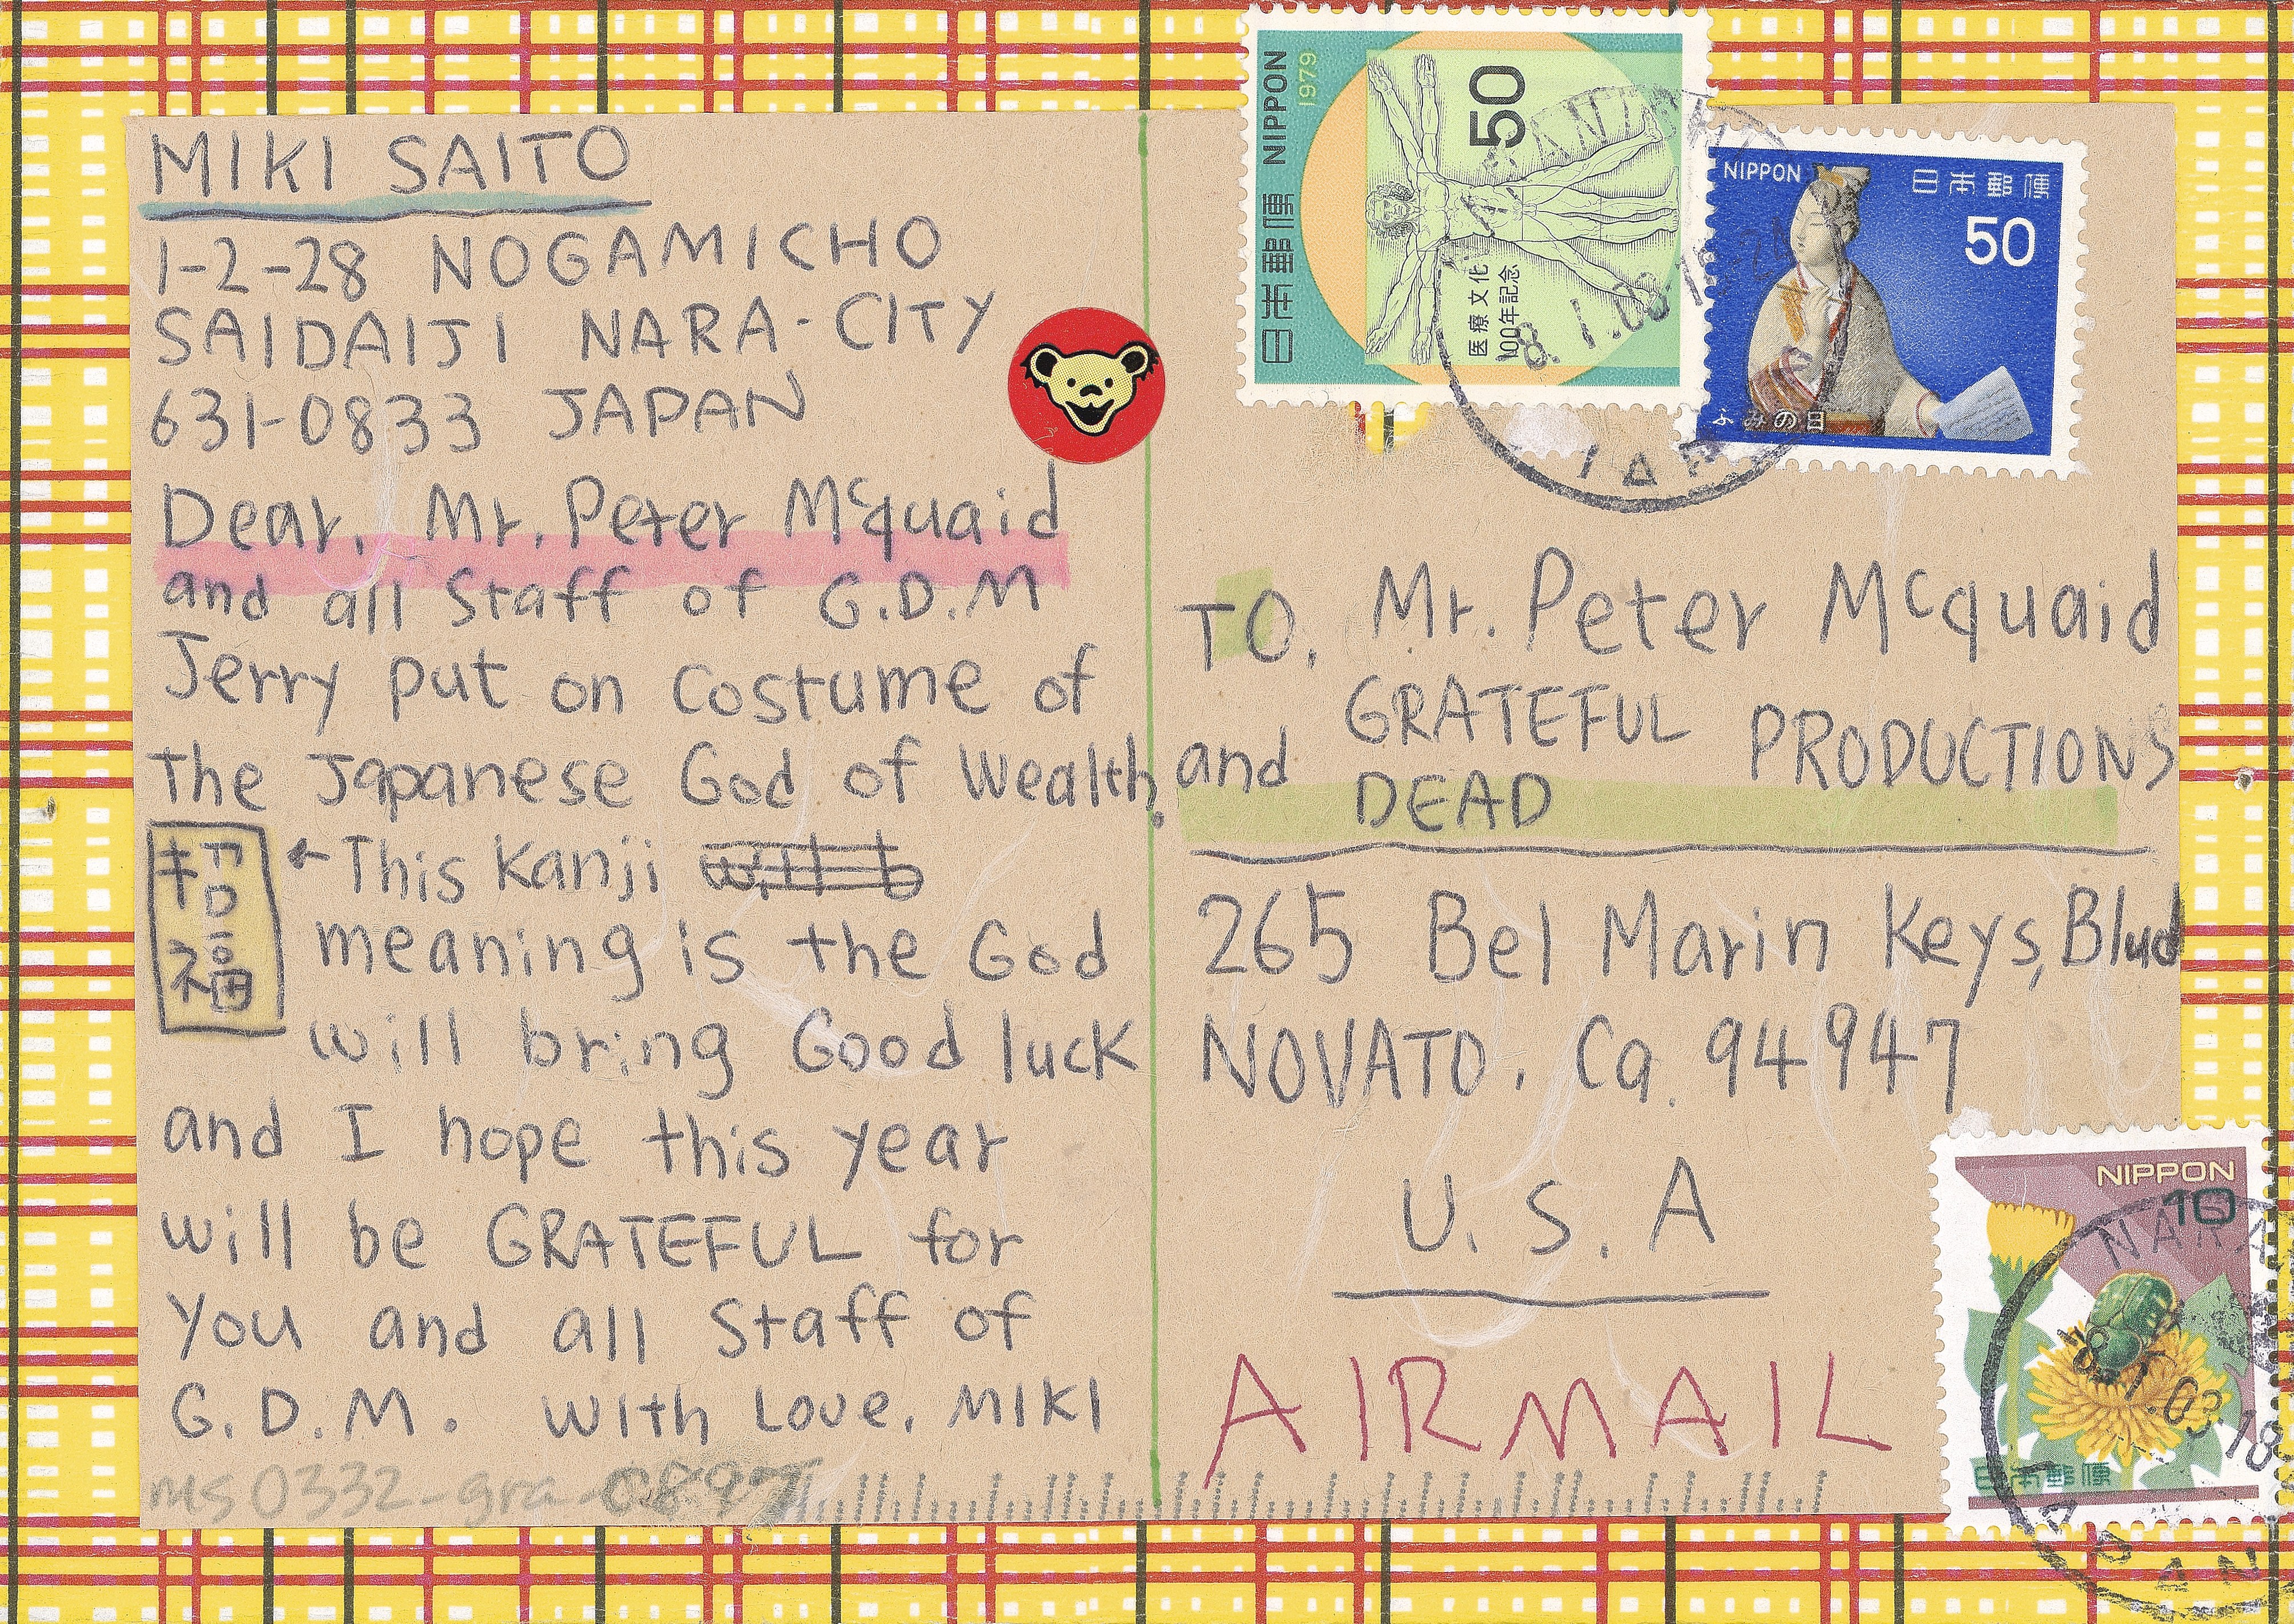 MIKI SAITO
1-2-28 NOGAMICHO
SAIDAIJI NARA-CITY
631-0833 JAPAN
Dear, Mr. Peter Mcquaid
and all Staff of G.D.M
Jerry put on costume of
the Japanese God of Wealth.
招福
←This Kanji
meaning is the God
will bring Good luck
and I hope this year
will be GRATEFUL for
you and all Staff of
G.D.M. With Love, MIKI
ms0332-gra-
NIPPON
1979
50
日本郵便
医療文化
100年記念
NIPPON
日本郵便
50
ふみの日
TO, Mr. Peter Mcquaid
and GRATEFUL DEAD PRODUCTIONS
265 Bel Marin Keys, Blvd
NOVATO, Ca. 94947
U.S.A
AIRMAIL
NIPPON
10
日本郵便
NARA
JAPAN